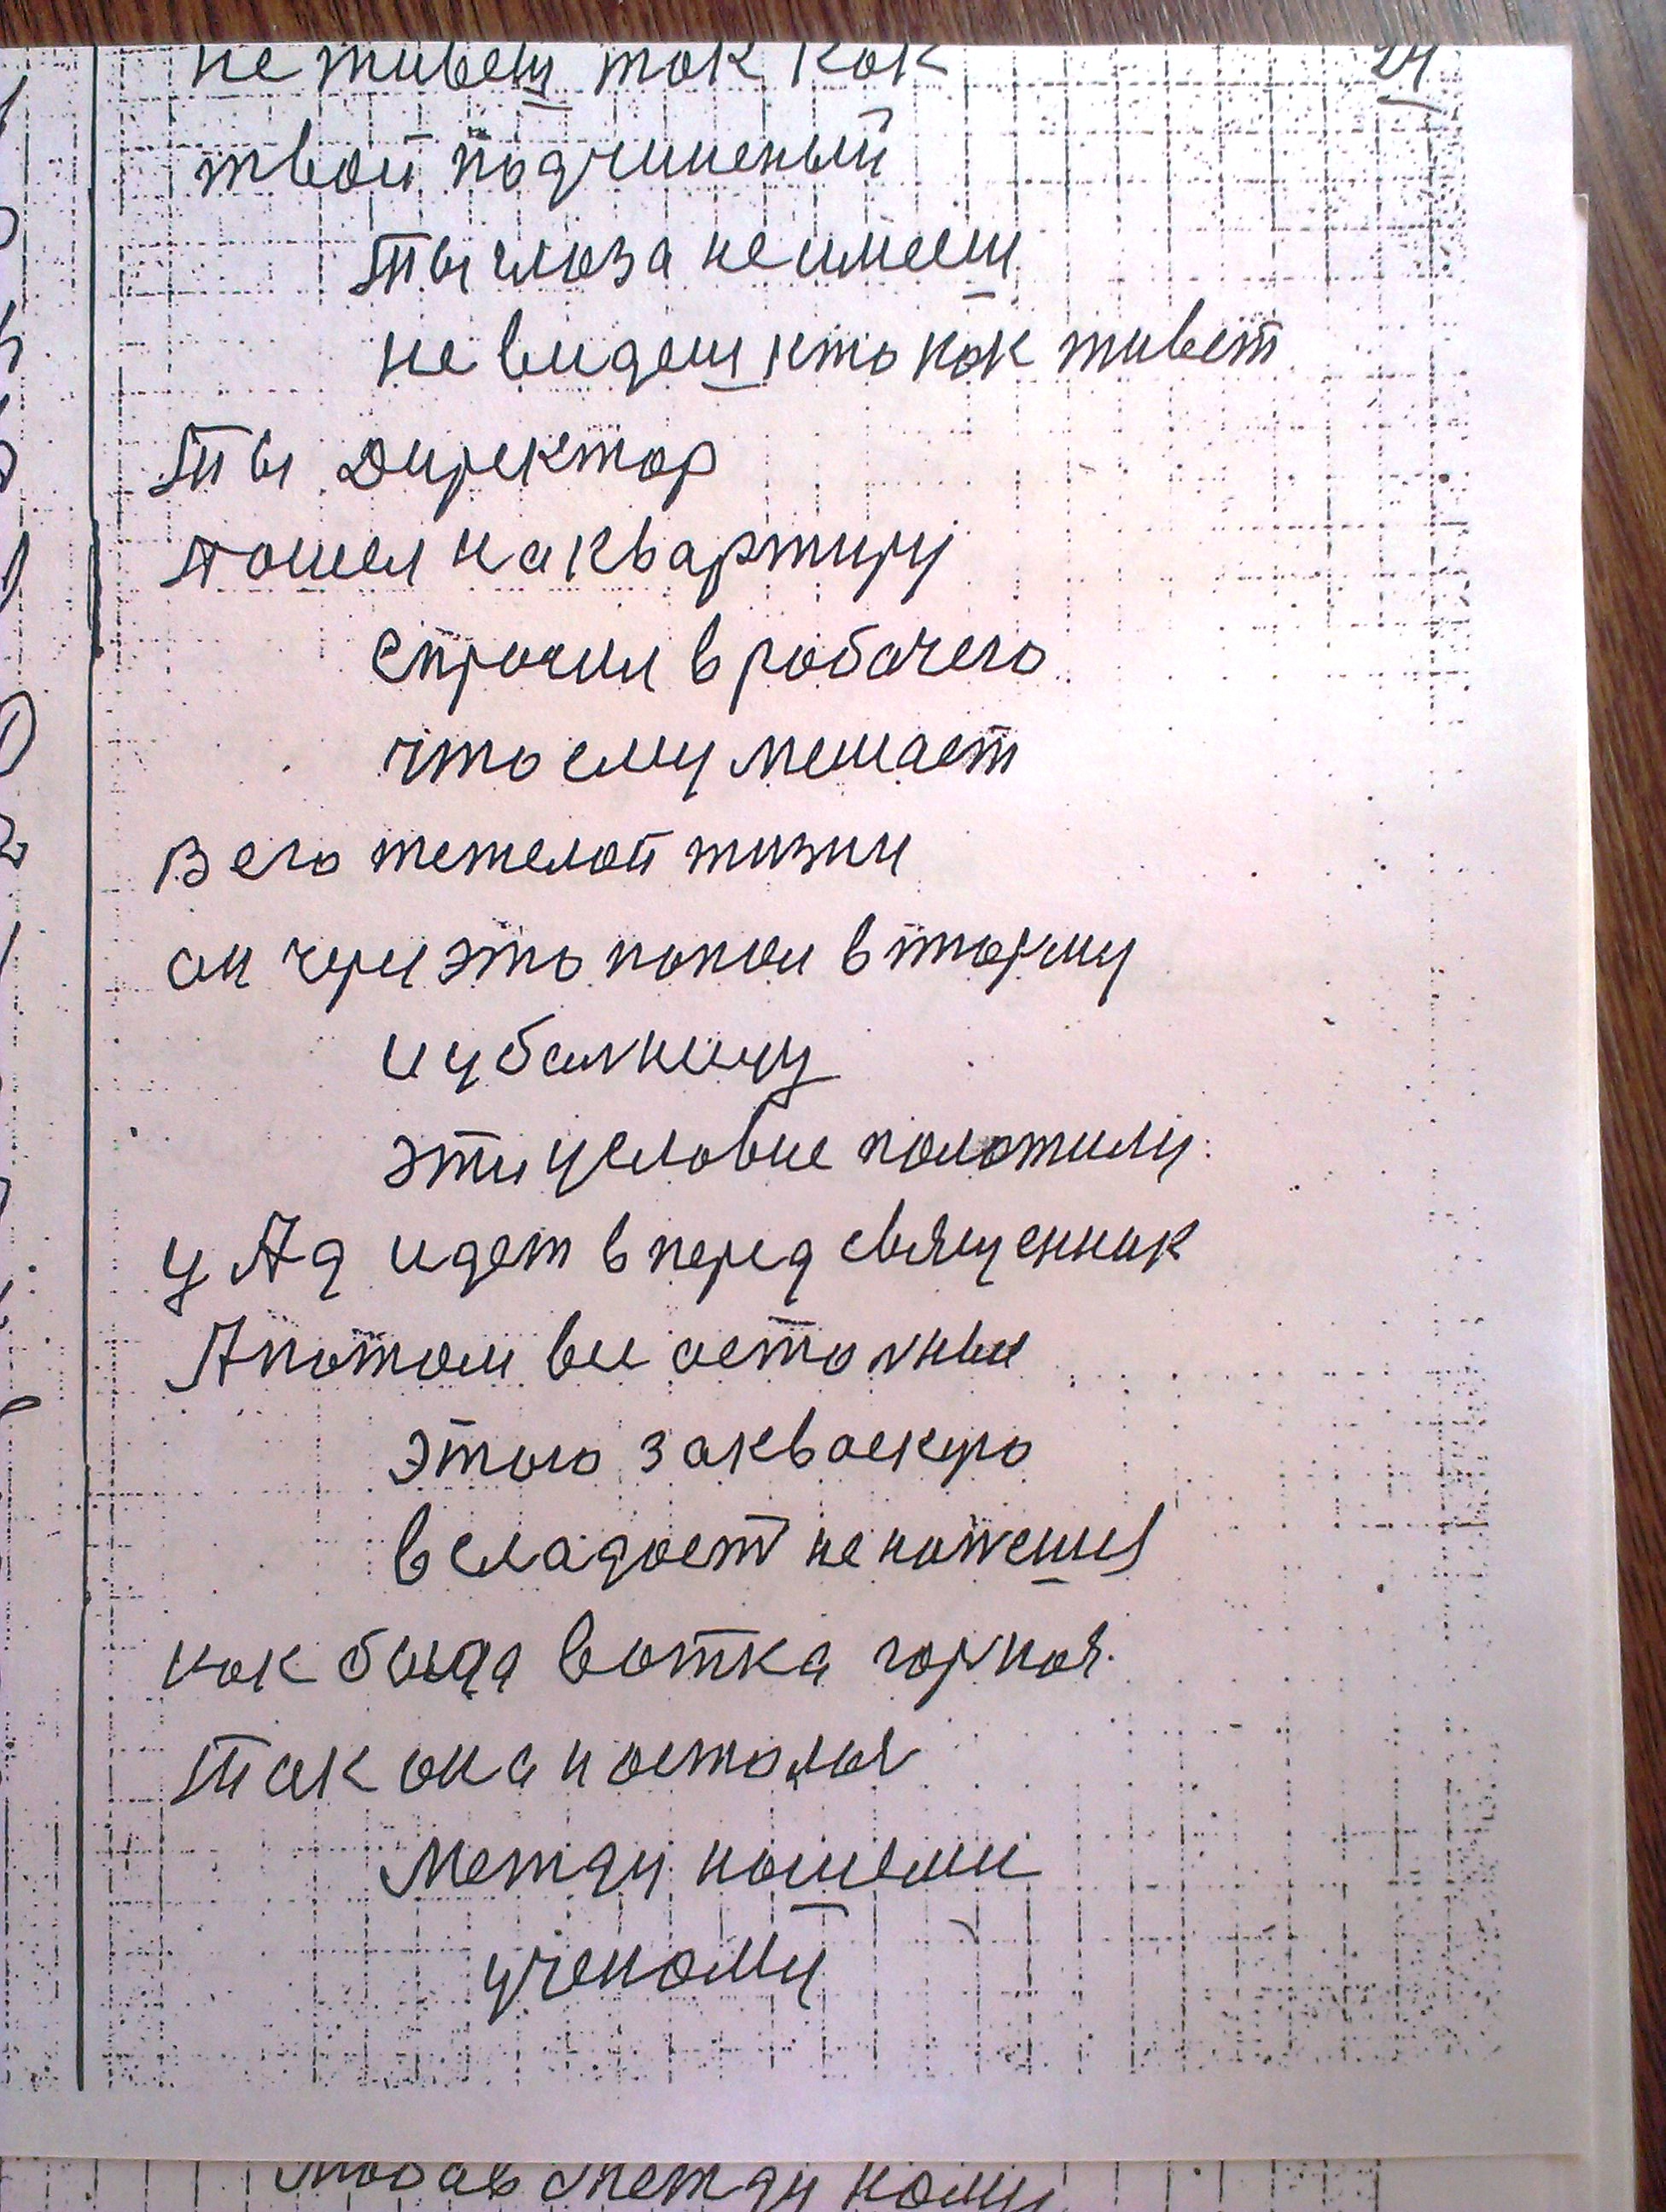 не живеш так как 24
твой подчиненый
ты глаза не имееш
не видеш кто как живет
Ты Директор
пошел на квартиру
спросил в рабачего
что ему мешает
в его тежелой жизни
он через это попал в тюрму
и у балницу
эти условие положили
у Ад идет вперед священник
А потом все осталные
этого закваскую
в сладост не напешся
как была вотка горкая
Так она и осталыя
между нашеми
ученому
между кому